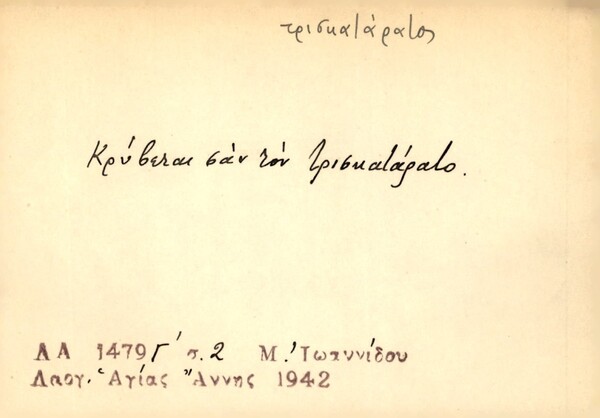 τρισκατάρατος
Κρύβεται σὰν τὸν τρισκατάρατο.
ΛΑ 1479 Γ΄ σ. 2 Μ. Ἰωαννίδου
Λαογ. Ἁγίας Ἄννης 1942